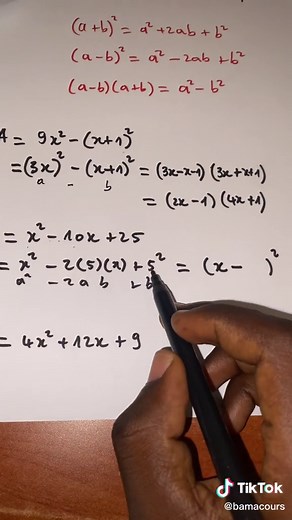 (a+b)² = a² + 2ab + b²
(a-b)² = a² - 2ab + b²
(a-b)(a+b) = a² - b²
A = 9x² - (x+1)²
= (3x)² - (x+1)² = (3x-x-1)(3x+x+1)
a - b
= (2x-1)(4x+1)
= x² - 10x + 25
= x² - 2(5)(x) + 5² = (x - )²
a² - 2 a b + b
= 4x² + 12x + 9
TikTok
@bamacours